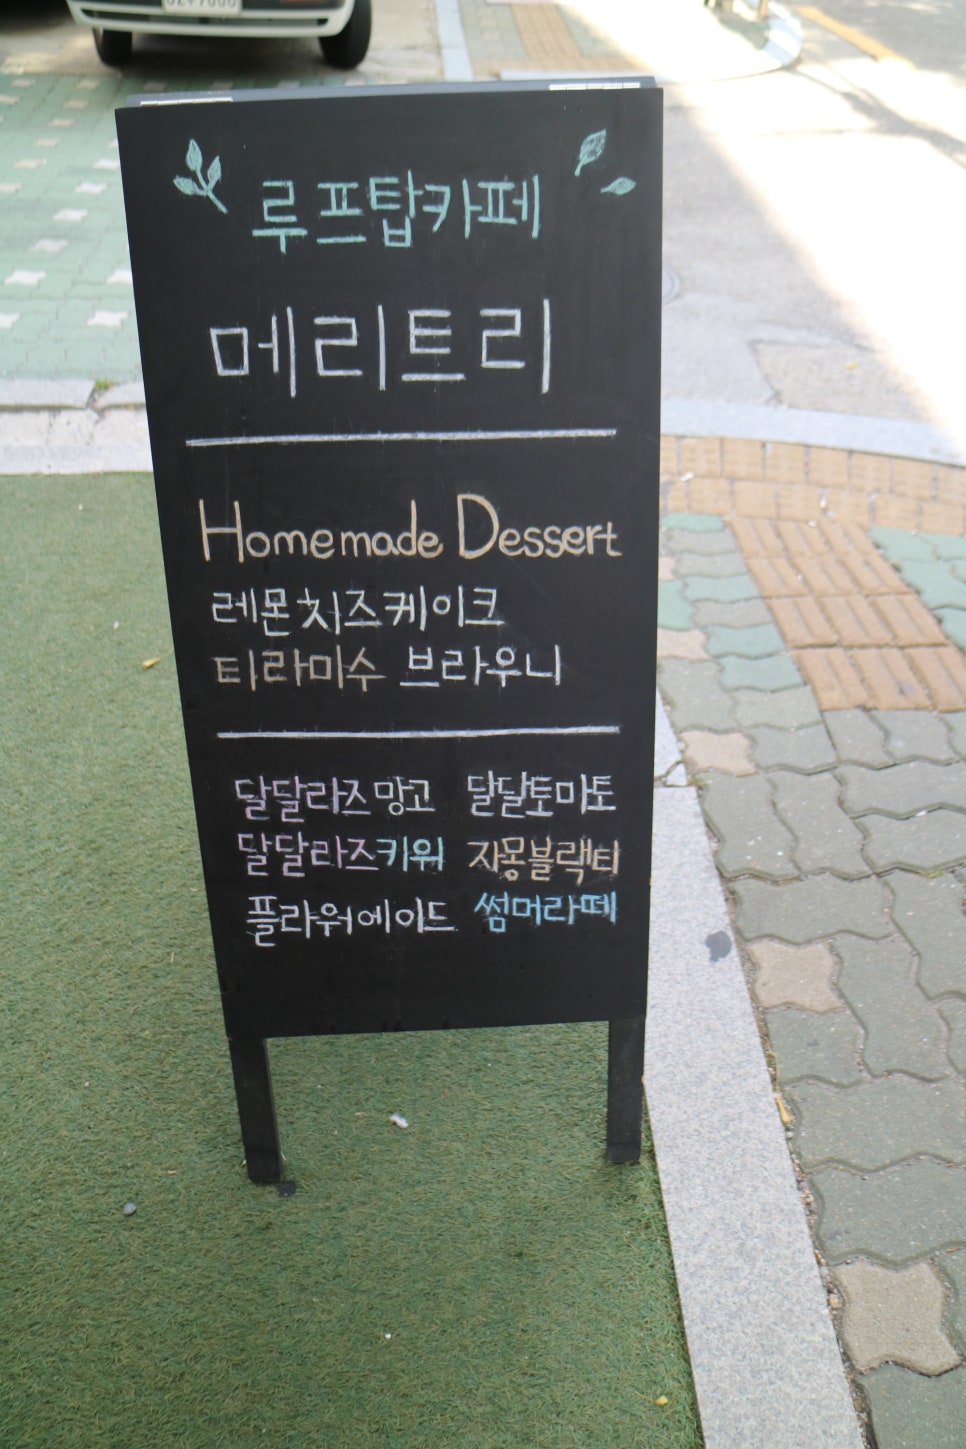 루프탑카페
메리트리
Homemade Dessert
레몬치즈케이크
티라미수 브라우니
달달라즈망고 달달토마토
달달라즈키위 자몽블랙티
플라워에이드 썸머라떼